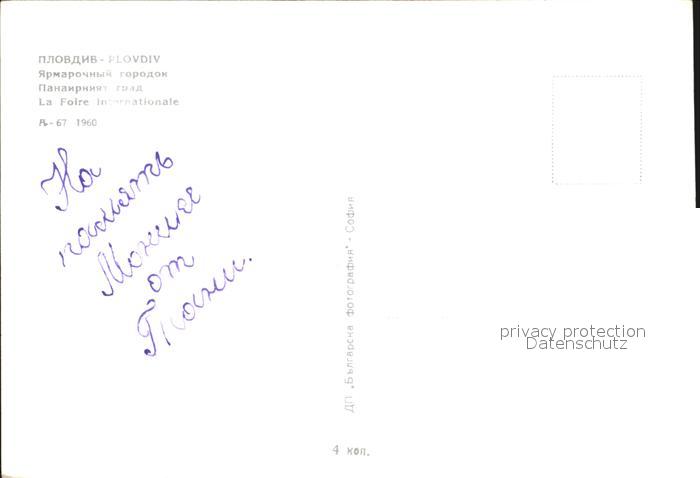 ПЛОВДИВ - PLOVDIV
Ярмарочный городок
Панаирният град
La Foire Internationale
67 1960
На
память
от
Тани.
ДП „Българска фотография" - София
privacy protection
Datenschutz
4 коп.